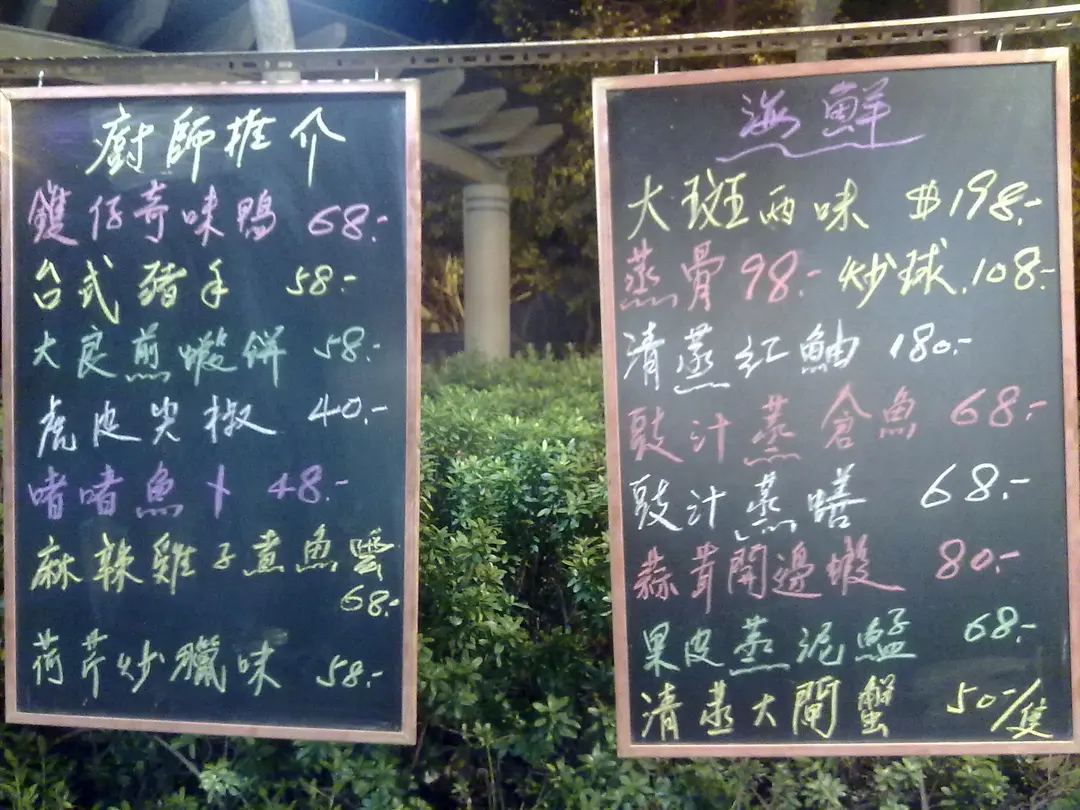 廚師推介
鏟仔奇味鴨 68.-
台式豬手 58.-
大良煎蝦餅 58.-
虎皮尖椒 40.-
啫啫魚卜 48.-
麻辣雞子煮魚雲
68.-
荷芹炒臘味 58.-
海鮮
大斑兩味 $198.-
蒸骨 98.- 炒球 108.-
清蒸紅鮋 180.-
豉汁蒸倉魚 68.-
豉汁蒸鱔 68.-
蒜茸開邊蝦 80.-
果皮蒸泥鯭 68.-
清蒸大閘蟹 50-/隻